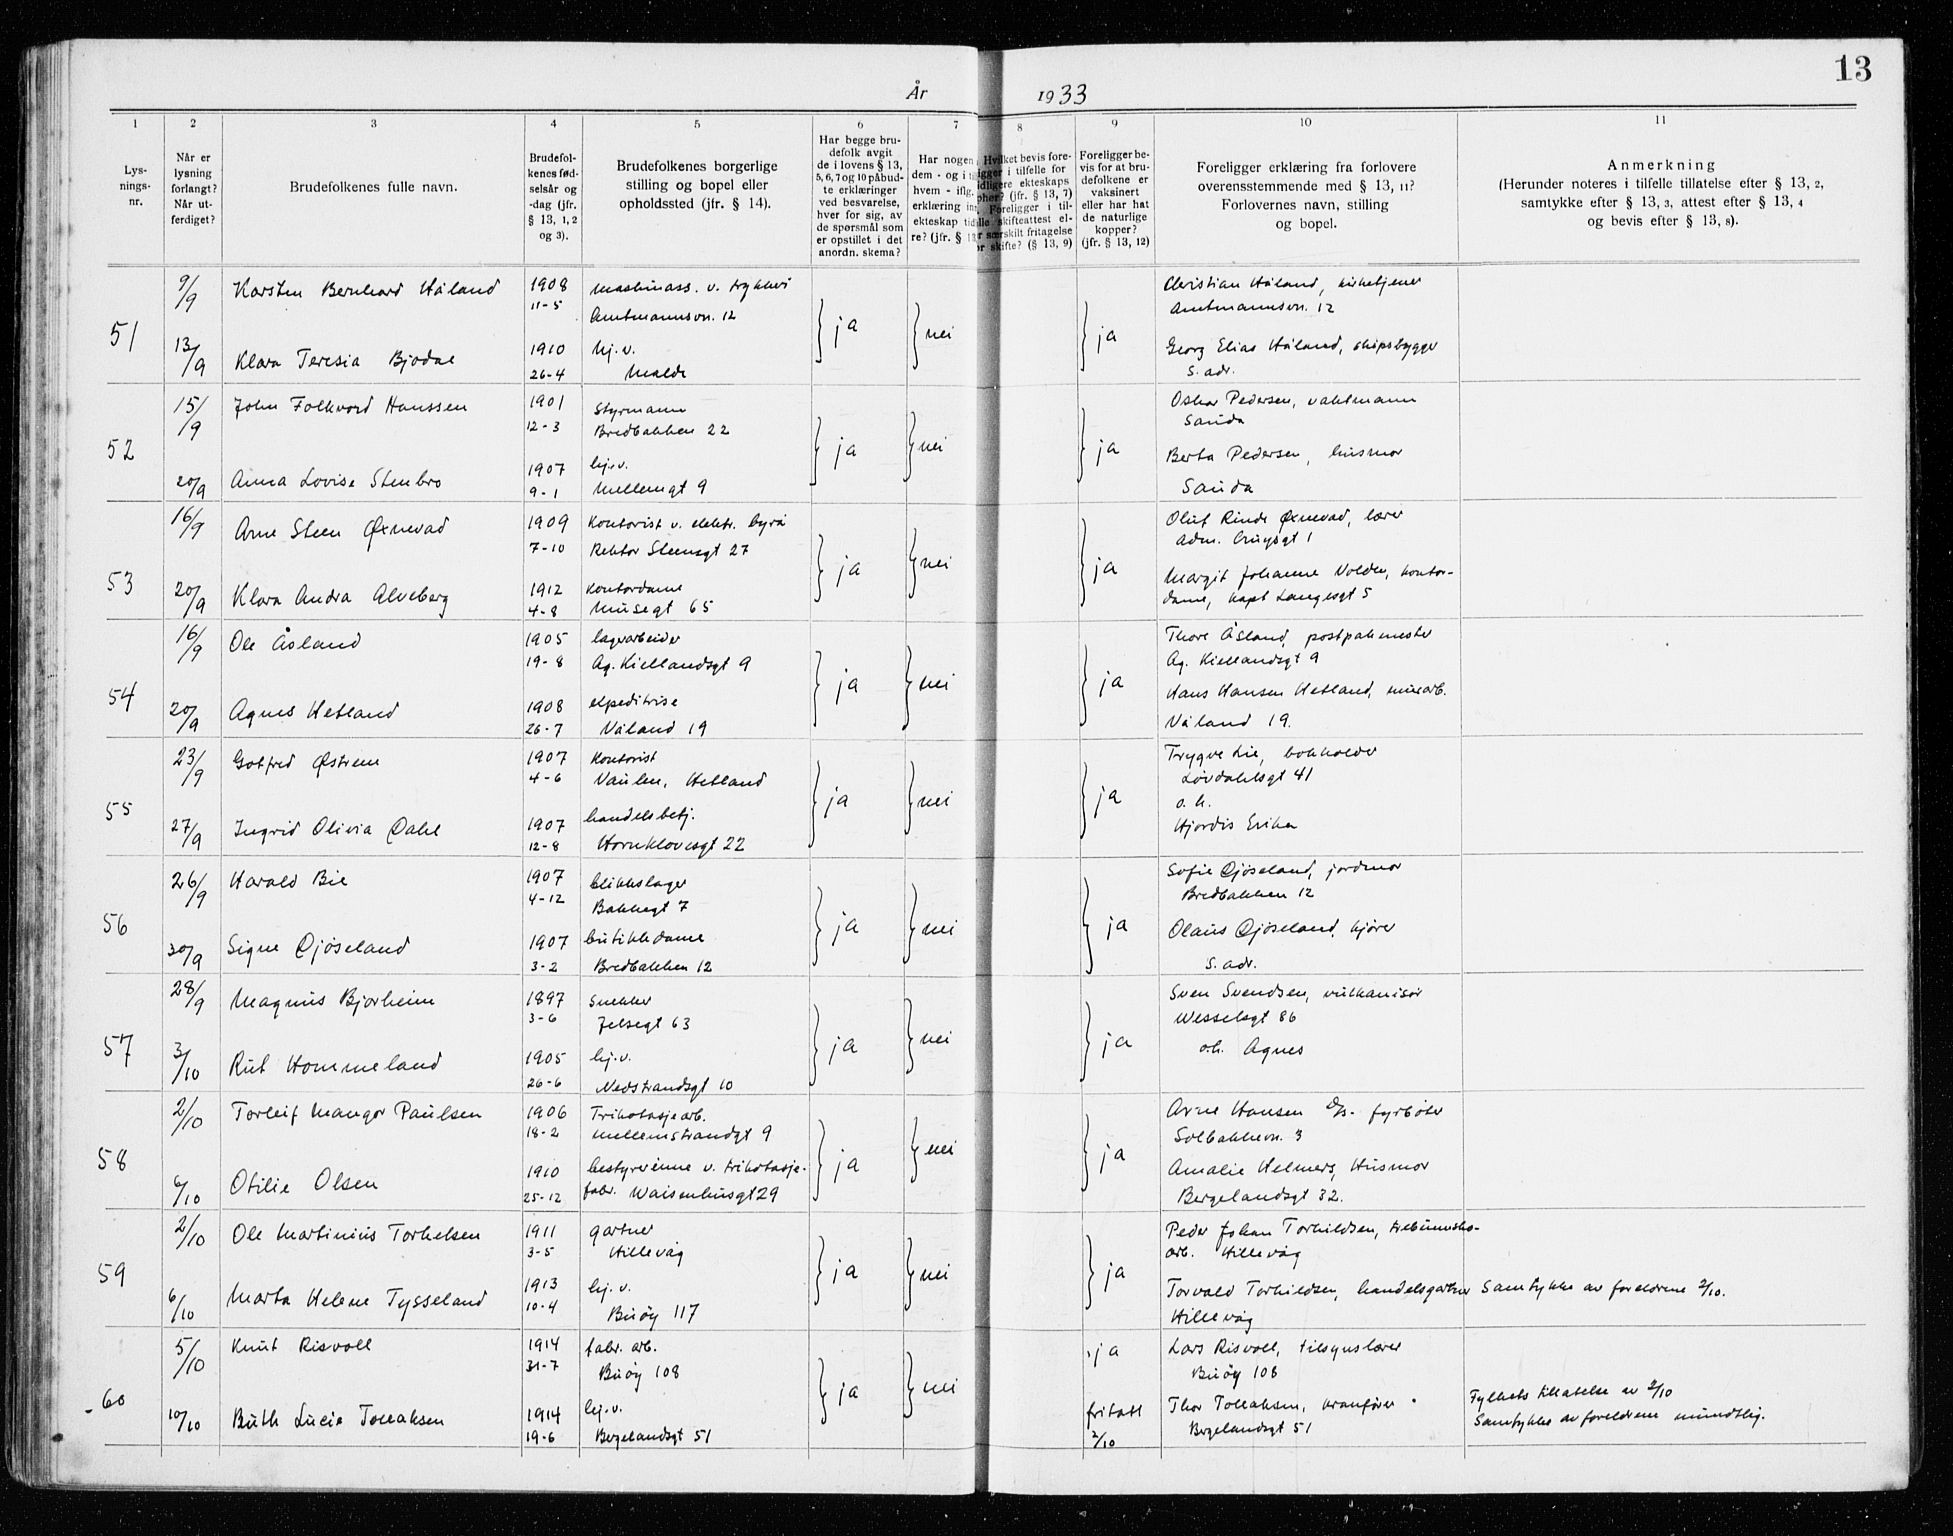 13
År 1933
1 2 3 4 5 6 7 8 9 10 11
Lys-
nings-
nr.
Når er
lysning
forlangt?
Når ut-
ferdiget?
Brudefolkenes fulle navn.
Brudefol-
kenes fød-
selsår og
-dag (jfr.
§ 13, 1, 2
og 3).
Brudefolkenes borgerlige
stilling og bopel eller
opholdssted (jfr. § 14).
Har begge bru-
defolk avgit
de i lovens § 13,
5, 6, 7 og 10 påbud-
te erklæringer
ved besvarelse,
hver for sig, av
de spørsmål som
er opstillet i det
anordn. skema?
Har nogen
dem - og i
hvem - iflg.
erklæring
ekteskap
re? (jfr. §
Hvilket bevis fore-
i tilfelle for
ekteskaps
(jfr. § 13, 7)
Foreligger i til-
skifteattest el-
særskilt fritagelse
skifte? (§ 13, 9)
Foreligger be-
vis for at bru-
defolkene er
vaksinert
eller har hat
de naturlige
kopper?
(jfr. § 13, 12)
Foreligger erklæring fra forlovere
overensstemmende med § 13, 11?
Forlovernes navn, stilling
og bopel.
Anmerkning
(Herunder noteres i tilfelle tillatelse efter § 13, 2,
samtykke efter § 13, 3, attest efter § 13, 4
og bevis efter § 13, 8).
51
9/9 Karsten Bernhard Håland 1908 maskinass. v. trykkeri
11-5 Amtmannsvn. 12
ja nei ja
Christian Håland, kirketjener
Amtmannsvn. 12
13/9 Klara Teresia Bjodal 1910 hj. v.
26-4 Malde
Georg Elias Håland, skipsbygger
s. adr.
52
15/9 John Folkvord Hanssen 1901 Styrmann
12-3 Bredbakken 22
ja nei ja
Oskar Pedersen, vaktmann
Sauda
20/9 Anna Lovise Stenbro 1907 hj. v.
9-1 Mellemgt 9
Berta Pedersen, husmor
Sauda
53
16/9 Arne Steen Øxnevad 1909 Kontorist v. elektr. byrå
7-10 Rektor Steensgt 27
ja nei ja
Oluf Rinde Øxnevad, lærer
Adm. Cruysgt 1
20/9 Klara Andra Alveberg 1912 Kontordame
4-8 Musegt 65
Margit Johanne Volden, kontor-
dame, Kapt Langesgt 5
54
16/9 Ole Åsland 1905 lagerarbeider
19-8 Ag. Kiellandsgt 9
ja nei ja
Thore Åsland, postpakmester
Ag. Kiellandsgt 9
20/9 Agnes Hetland 1908 ekspeditrise
26-7 Våland 19
Hans Hansen Hetland, murarb.
Våland 19.
55
23/9 Gotfred Østrem 1907 Kontorist
4-6 Vaulen, Hetland
ja nei ja
Trygve Lie, bokholder
Løvdahlsgt 41
o. h.
27/9 Ingrid Olivia Dahl 1907 handelsbetj.
12-8 Hornklovesgt 22
Hjørdis Erika
56
26/9 Harald Bie 1907 blikkslager
4-12 Bakkegt 7
ja nei ja
Sofie Djøseland, jordmor
Bredbakken 12
30/9 Signe Djøseland 1907 butikkdame
3-2 Bredbakken 12
Olaus Djøseland, kjører
s. adr.
57
28/9 Magnus Bjorheim 1897 Snekker
3-6 Jelsegt 63
ja nei ja
Sven Svendsen, vulkanisør
Wesselsgt 86
3/10 Rut Hommeland 1905 hj. v.
26-6 Nedstrandsgt 10
o. h. Agnes
58
2/10 Torleif Mangor Paulsen 1906 Trikotasjearb.
18-2 Mellemstrandgt 9
ja nei ja
Arne Hansen fyrbøter
Solbakkevn. 3
6/10 Otilie Olsen 1910 bestyrerinne v. trikotasje-
25-12 fabr. Waisenhusgt 29
Amalie Helmers, Husmor
Bergelandsgt 32.
59
2/10 Ole Martinius Torkelsen 1911 gartner
3-5 Hillevåg
ja nei ja
Peder Johan Torkildsen, trebunnsko-
arb. Hillevåg
6/10 Marta Helene Tysseland 1913 hj. v.
10-4 Buøy 117
Torvald Torkildsen, handelsgartner
Hillevåg
Samtykke av foreldrene 2/10.
60
5/10 Knut Risvoll 1914 fabr. arb.
31-7 Buøy 108
ja nei ja
Lars Risvoll, tilsynslærer
Buøy 108
10/10 Ruth Lucie Tollaksen 1914 hj. v.
19-6 Bergelandsgt 51
fritatt
2/10
Thor Tollaksen, kranfører
Bergelandsgt 51
Fylkets tillatelse av 2/10
Samtykke av foreldrene mundtlig.